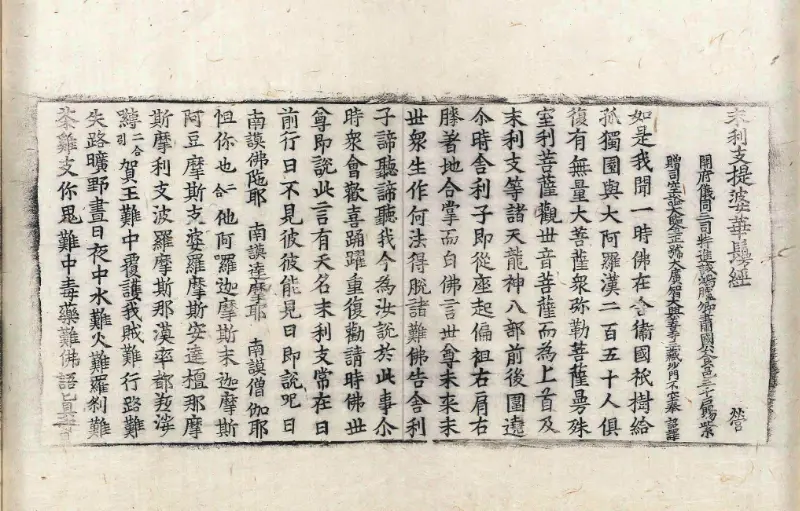 末利支提婆華鬘經 營
開府儀同三司特進試鴻臚卿肅國公食邑三千戶賜紫
贈司空謚大鑒正號大廣智大興善寺三藏沙門不空奉 詔譯
如是我聞一時佛在舍衞國祇樹給
孤獨園與大阿羅漢二百五十人俱
復有無量大菩薩衆弥勒菩薩曼殊
室利菩薩觀世音菩薩而為上首及
末利支等諸天龍神八部前後圍遶
尒時舍利子即從座起偏袒右肩右
膝著地合掌而白佛言世尊未來末
世衆生作何法得脫諸難佛告舍利
子諦聽諦聽我今為汝說於此事尒
時衆會歡喜踊躍重復勸請時佛世
尊即說此言有天名末利支常在日
前行日不見彼彼能見日即說呪日
南謨佛陁耶 南謨達摩耶 南謨僧伽耶
怛你也二合他阿囉迦摩斯末迦摩斯
阿豆摩斯支婆羅摩斯安達檀那摩
斯摩利支波羅摩斯那漠率都羖娑
賀王難中覆護我賊難行路難
失路曠野晝日夜中水難火難羅刹難
荼雞支你鬼難中毒藥難佛